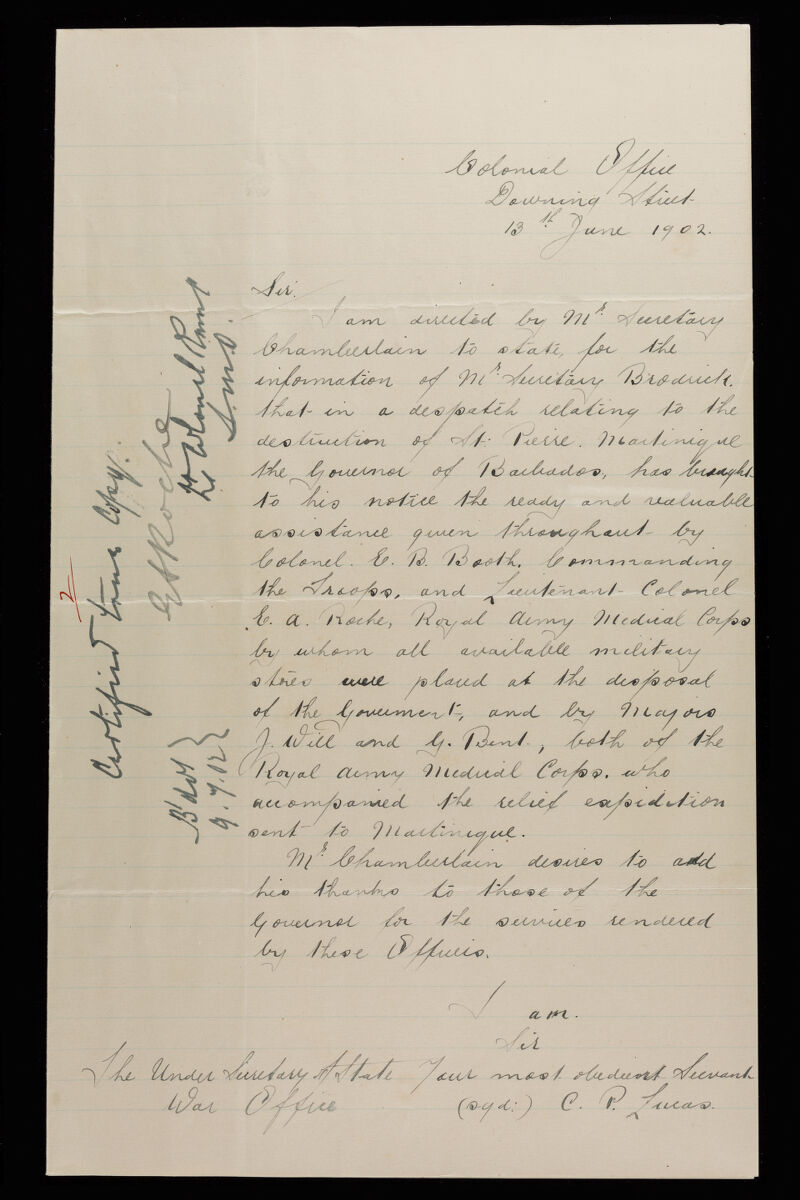 Colonial Office
Downing Street
13th June 1902.
Sir.
I am directed by Mr. Secretary
Chamberlain to state, for the
information of Mr. Secretary Brodrick.
that in a despatch relating to the
destruction of St. Pierre. Martinique
the Governor of Barbados, has brought
to his notice the ready and valuable
assistance given throughout by
Colonel. E. B. Booth. Commanding
the Troops, and Lieutenant Colonel
E. A. Roche, Royal Army Medical Corps
by whom all available military
stores were placed at the disposal
of the Government, and by Majors
J. Will and G. Bent, both of the
Royal Army Medical Corps. who
accompanied the relief expedition
sent to Martinique.
Mr. Chamberlain desires to add
his thanks to those of the
Governor for the services rendered
by these Officers.
I am.
Sir
Your most obedient Servant
(sgd:) C. P. Lucas.
The Under Secretary of State
War Office
2
Certified true Copy.
EARoche
Lt Colonel
S.M.O.
B'dos
9.7.02